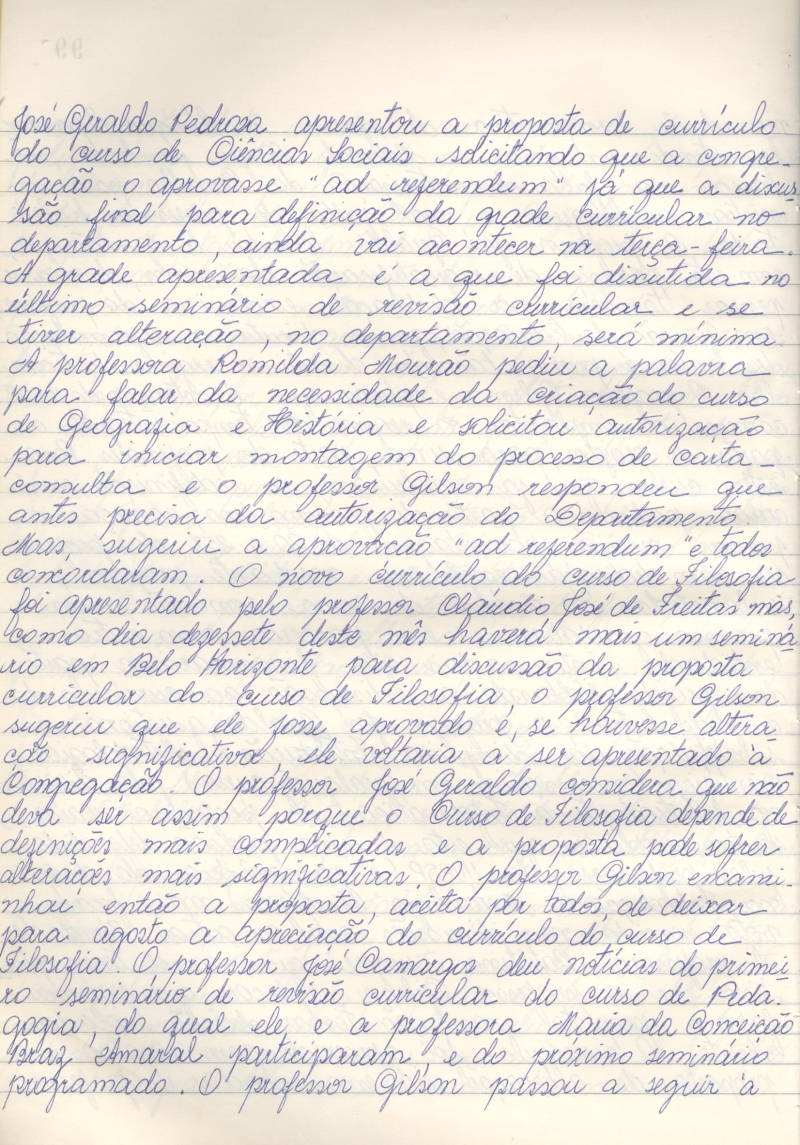 José Geraldo Pedrosa apresentou a proposta de currículo
do curso de Ciências Sociais solicitando que a congre-
gação o aprovasse "ad referendum" já que a discus-
são final para definição da grade curricular no
departamento, ainda vai acontecer na terça-feira.
A grade apresentada é a que foi discutida no
último seminário de revisão curricular e se
tiver alteração, no departamento, será mínima.
A professora Romilda Mourão pediu a palavra
para falar da necessidade da criação do curso
de Geografia e História e solicitou autorização
para iniciar montagem do processo de carta-
consulta e o professor Gilson respondeu que
antes precisa da autorização do Departamento.
Mas, sugeriu a aprovação "ad referendum" e todos
concordaram. O novo currículo do curso de Filosofia
foi apresentado pelo professor Cláudio José de Freitas mas,
como dia dezessete deste mês haverá mais um seminá-
rio em Belo Horizonte para discussão da proposta
curricular do curso de Filosofia, o professor Gilson
sugeriu que ele fosse aprovado e, se houvesse altera-
ção significativa, ele voltaria a ser apresentado à
Congregação. O professor José Geraldo considera que não
deva ser assim porque o Curso de Filosofia depende de
definições mais complicadas e a proposta pode sofrer
alterações mais significativas. O professor Gilson encami-
nhou, então a proposta, aceita por todos, de deixar
para agosto a apreciação do currículo do curso de
Filosofia. O professor José Camargos deu notícias do primei-
ro seminário de revisão curricular do curso de Peda-
gogia, do qual ele e a professora Maria da Conceição
Braz Amaral participaram, e do próximo seminário
programado. O professor Gilson passou a seguir à